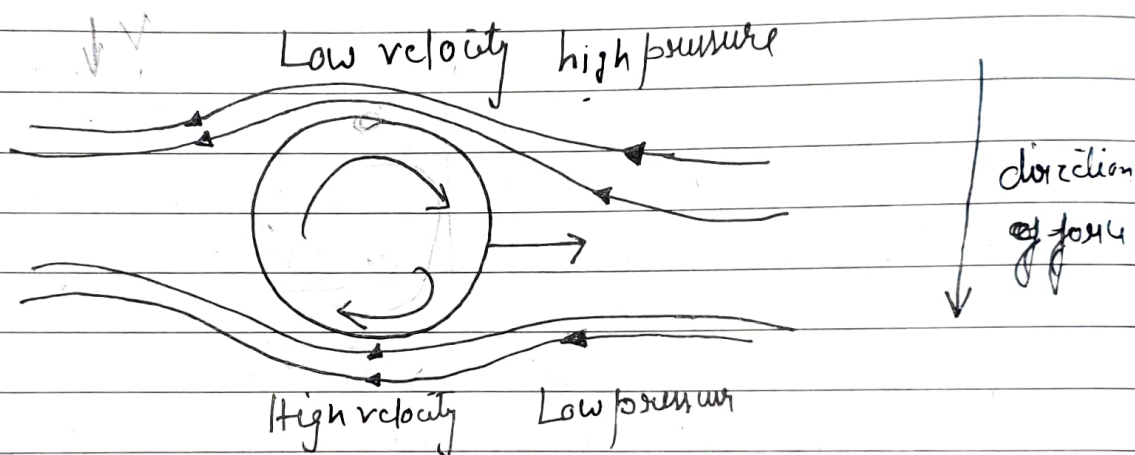 V
Low velocity high pressure
direction
of force
High velocity Low pressure